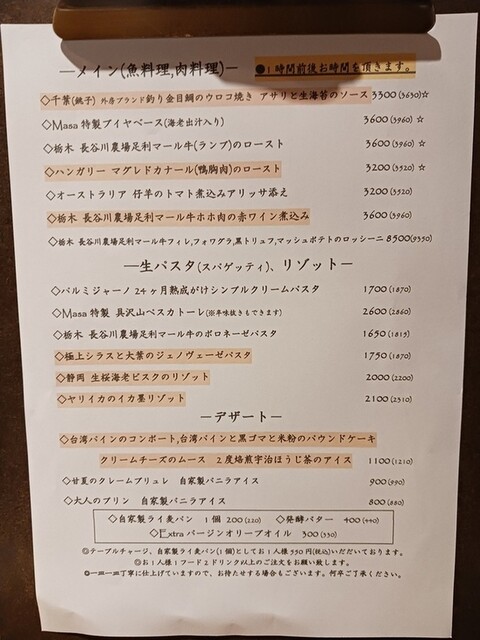 ―メイン(魚料理,肉料理)― ●1時間前後お時間を頂きます。
◇千葉(銚子) 外房ブランド釣り金目鯛のウロコ焼き アサリと生海苔のソース 3300(3630)☆
◇Masa特製ブイヤベース(海老出汁入り) 3600(3960)☆
◇栃木 長谷川農場足利マール牛(ランプ)のロースト 3600(3960)☆
◇ハンガリー マグレドカナール(鴨胸肉)のロースト 3200(3520)☆
◇オーストラリア 仔羊のトマト煮込みアリッサ添え 3200(3520)
◇栃木 長谷川農場足利マール牛ホホ肉の赤ワイン煮込み 3600(3960)
◇栃木 長谷川農場足利マール牛フィレ,フォワグラ,黒トリュフ,マッシュポテトのロッシーニ 8500(9350)
―生パスタ(スパゲッティ)、リゾット―
◇パルミジャーノ24ヶ月熟成がけシンプルクリームパスタ 1700(1870)
◇Masa特製 具沢山ペスカトーレ(※辛味抜きもできます) 2600(2860)
◇栃木 長谷川農場足利マール牛のボロネーゼパスタ 1650(1815)
◇極上シラスと大葉のジェノヴェーゼパスタ 1750(1870)
◇静岡 生桜海老ビスクのリゾット 2000(2200)
◇ヤリイカのイカ墨リゾット 2100(2310)
―デザート―
◇台湾パインのコンポート,台湾パインと黒ゴマと米粉のパウンドケーキ
クリームチーズのムース 2度焙煎宇治ほうじ茶のアイス 1100(1210)
◇甘夏のクレームブリュレ 自家製バニラアイス 900(990)
◇大人のプリン 自家製バニラアイス 800(880)
◇自家製ライ麦パン 1個 200(220) ◇発酵バター 400(440)
◇Extraバージンオリーブオイル 300(330)
◎テーブルチャージ、自家製ライ麦パン(1個)としてお1人様550円(税込)いただいております。
◎お1人様1フード2ドリンク以上のご注文をお願い致します。
◎一皿一皿丁寧に仕上げていますので、お待たせする場合もございます。何卒ご了承ください。